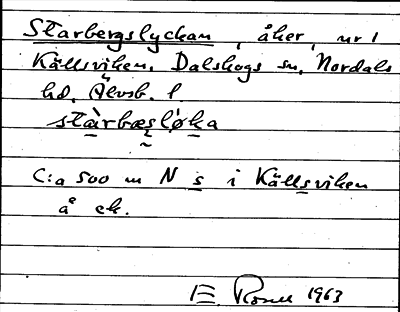 Starbergslyckan, åker, nr 1
Källsviken, Dalskogs sn, Nordals
hd, Älvsb. l.
stàrbæsløka
C:a 500 m N s i Källsviken
å ek.
E. 1963